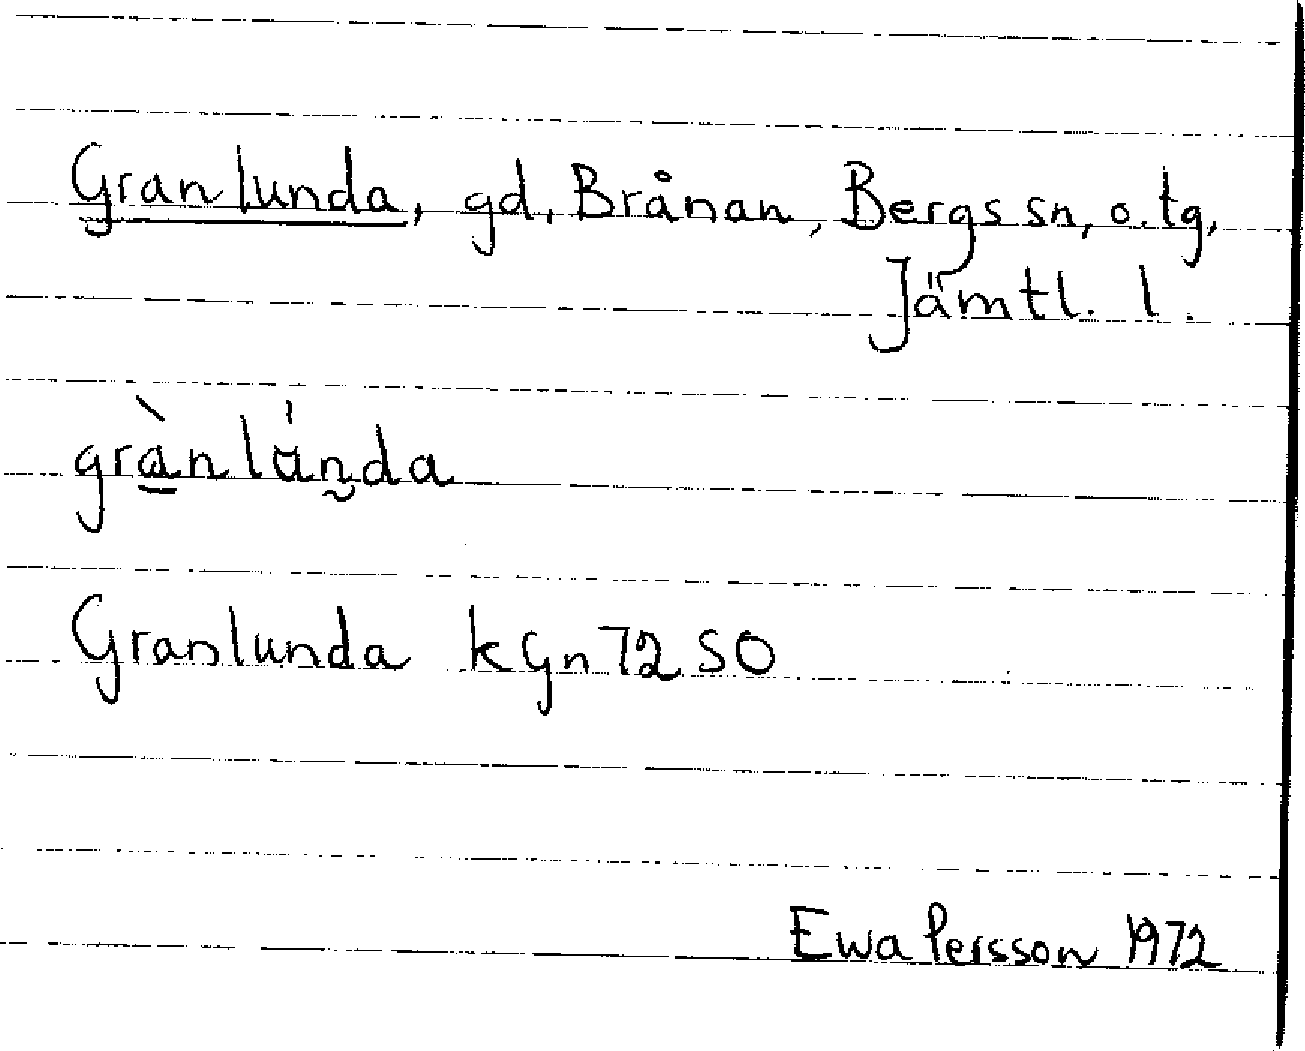 Granlunda, gd, Brånan, Bergs sn, o. tg,
Jämtl. l.
grànlúnda
Granlunda kGn 72 SO
Ewa Persson 1972